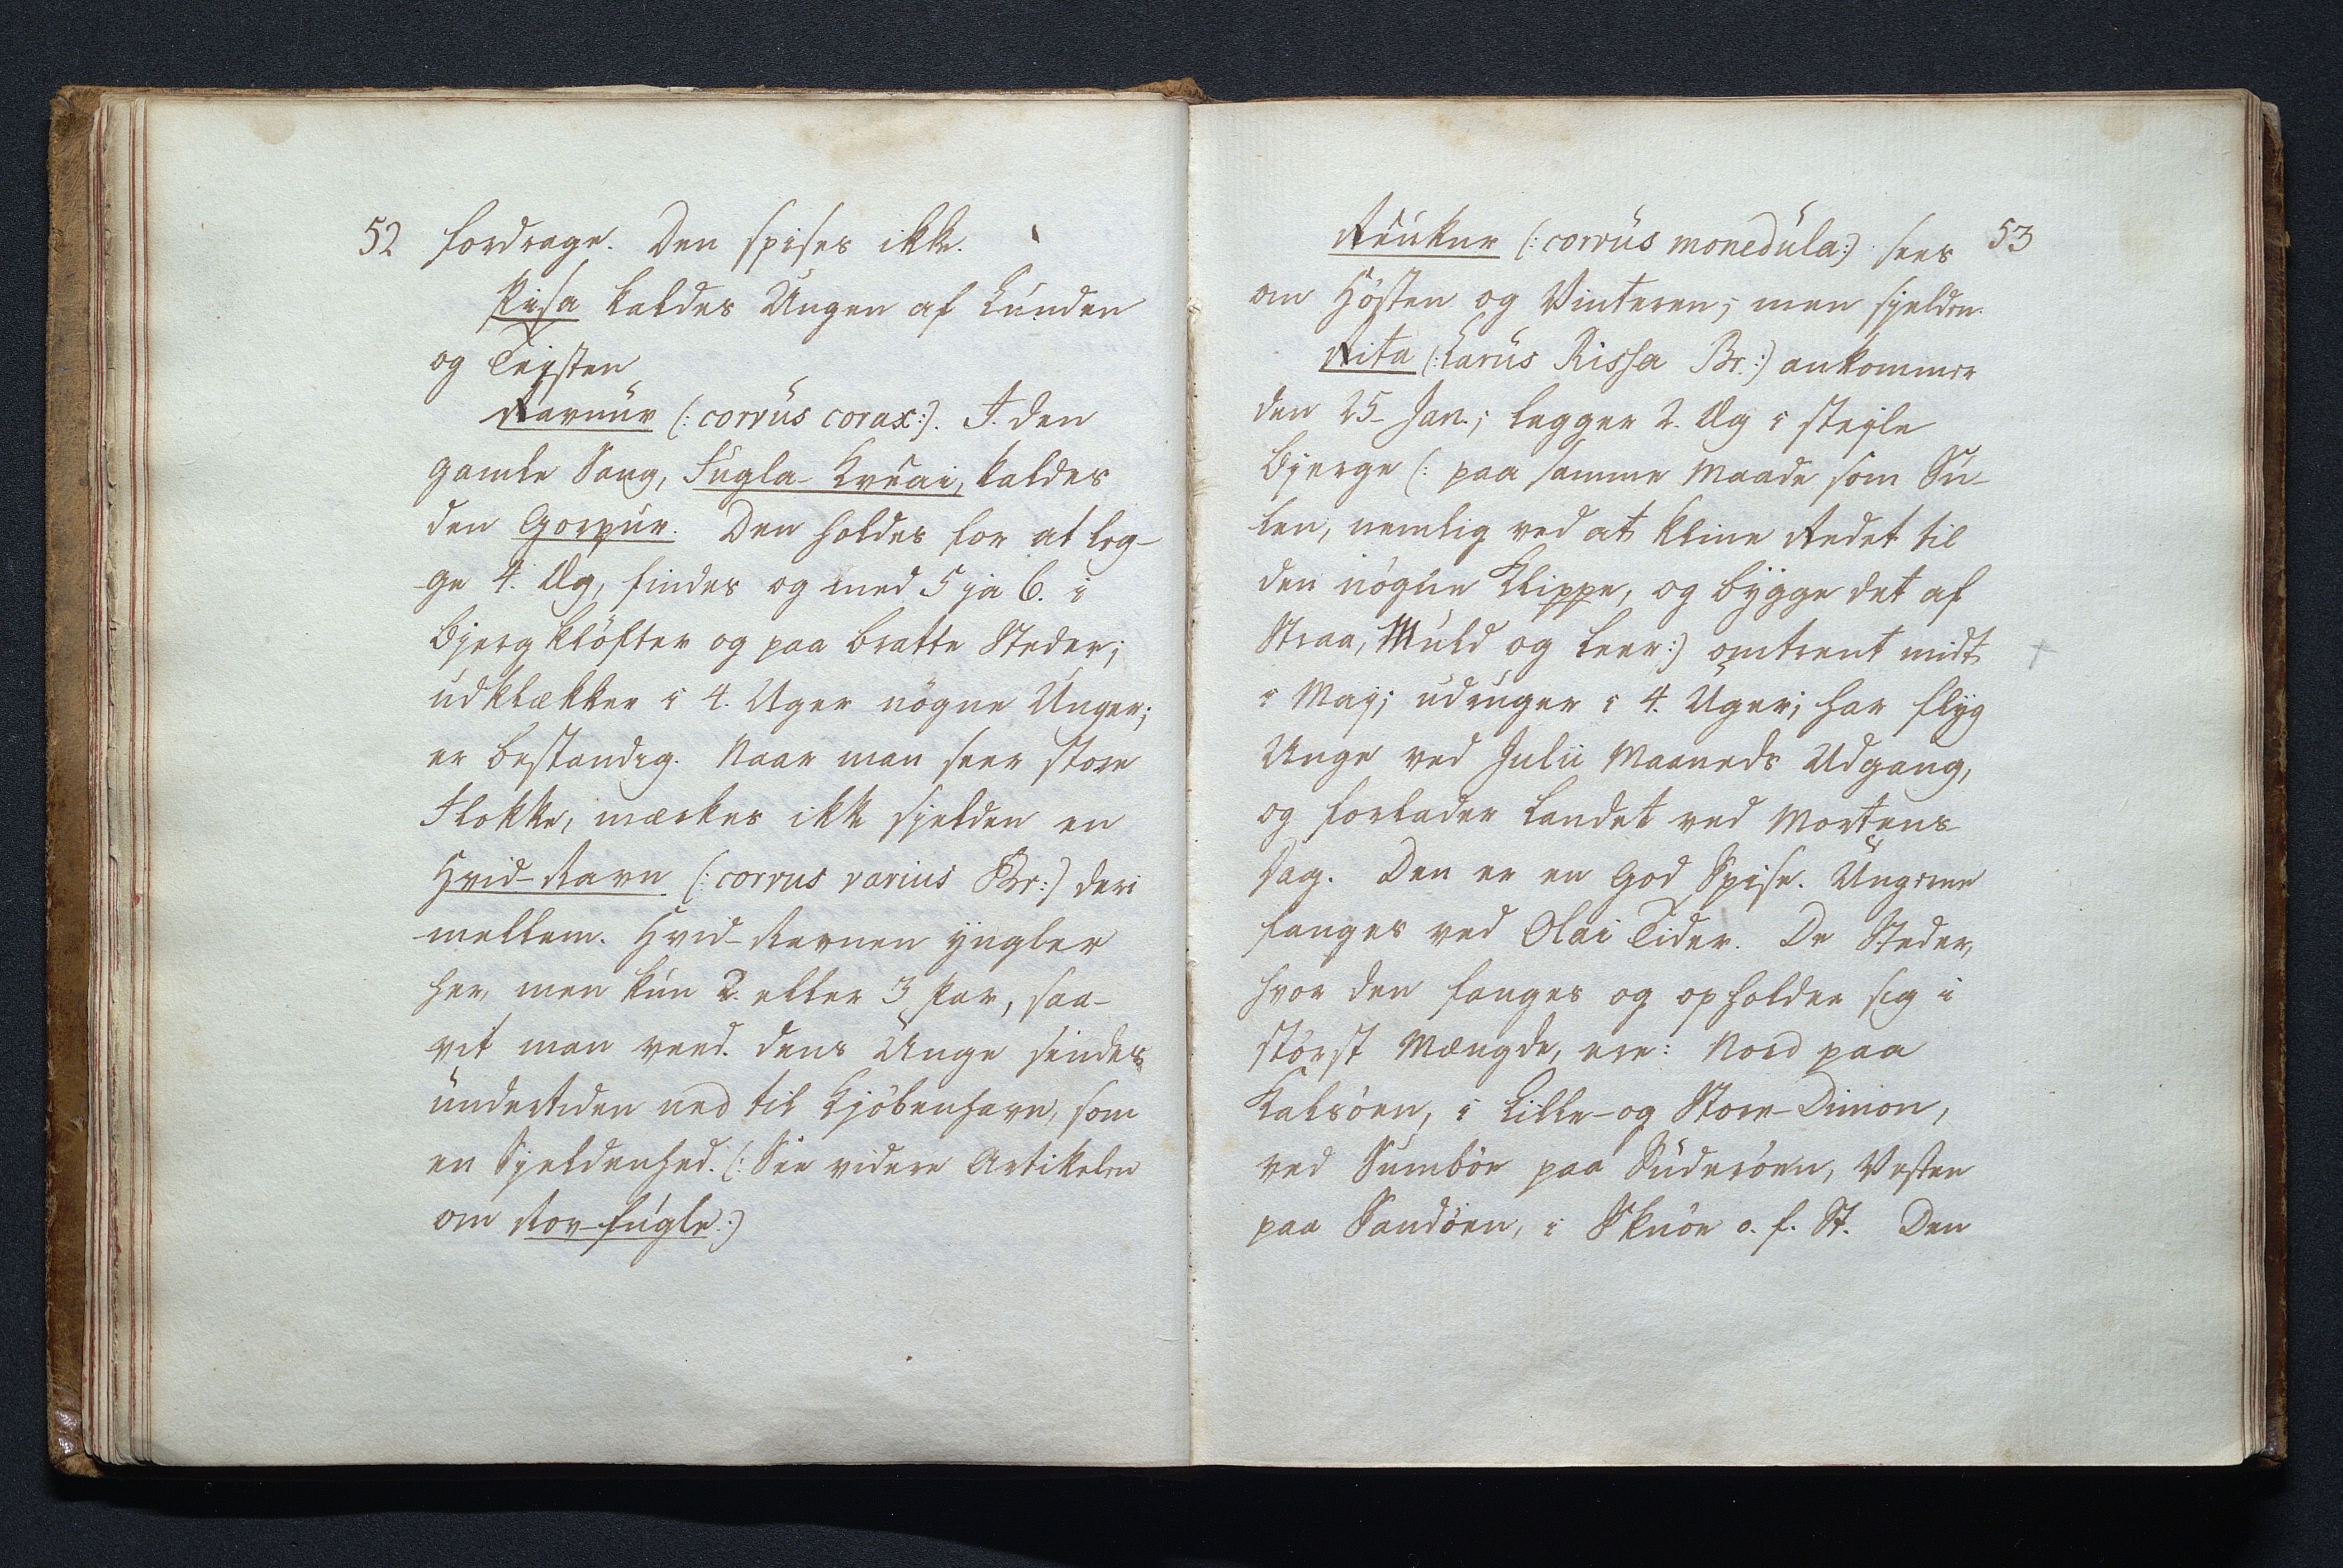 52 fordrage. Den spises ikke.
Pisa kaldes Ungen af Lunden
og Teisten
Ravnur (: corvus corax:). I den
gamle Sang, Fugla-Kvæai, kaldes
den Gorpur. Den holdes for at leg-
ge 4. Æg, findes og med 5 ja 6. i
Bjergkløfter og paa bratte Steder;
udklækker i 4. Uger nøgne Unger;
er bestandig. Naar man seer store
Flokke, mærkes ikke sjelden en
Hvid-Ravn (: corvus varius Br:) deri
mellem. Hvid-Ravnen yngler
her, men kun 2. eller 3 Par, saa-
vit man veed. dens Unge sendes
undertiden ned til Kjøbenhavn, som
en Sjeldenhed. (: See videre Artikelen
om Rov-fugle:)
(: corvus monedula:) sees 53
om Høsten og Vinteren; men sjelden.
Rita (: Larus Rissa Br.:) ankommer
den 25 Jan.; legger 2. Æg i stejle
Bjerge (: paa samme Maade som Su-
len, nemlig ved at kline Redet til
den nøgne Klippe, og bygge det af
Straa, Muld og Leer:) omtrent midt
i May; udruger i 4. Uger; har flyg
Unge ved Julii Maaneds Udgang,
og forlader Landet ved Mortens
dag. Den er en god Spise. Ungerne
fanges ved Olai Tider. De Steder,
hvor den fanges og opholder sig i
størst Mængde, ere: Nord paa
Kalsøen, i Lille- og Store-Dimon,
ved Sumbøe paa Suderøen, Vesten
paa Sandøen, i Skuøe o. f. St. Den